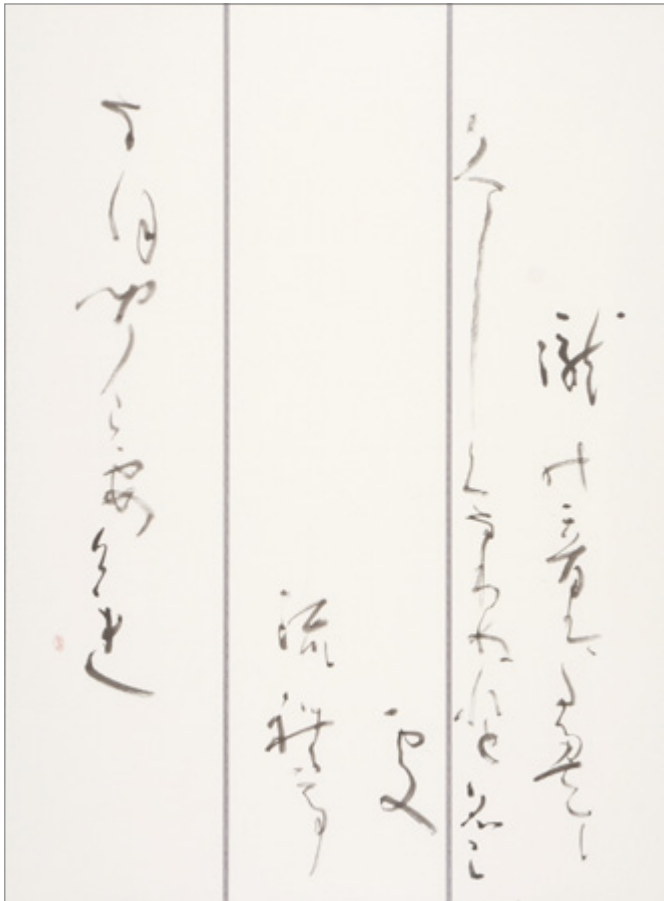 瀧の音はたえて
久しくなりぬれと名こ
そ
流れて
なほ聞こえけれ